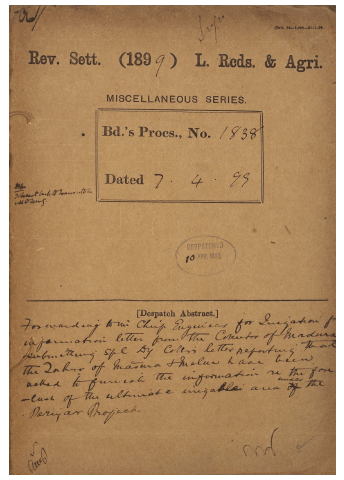 Rev. Sett. (1899) L. Rcds. & Agri.
MISCELLANEOUS SERIES.
Bd.'s Procs., No. 1838
Dated 7. 4. 99
DESPATCHED
10 APR 1899
[Despatch Abstract.]
Forwarding to the Chief Engineer for Irrigation for
information letter from the Collector of Madura
submitting Spl Dy Collr's letter reporting that
the Tahsr of Madura & Melur have been
asked to furnish the information re the fore
-cast of the ultimate irrigable area under the
Periyar Project